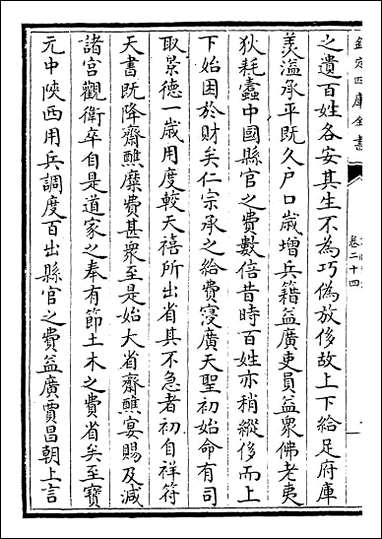 欽定四庫全書
卷二十四
之遺百姓各安其生不為巧偽放侈故上下給足府庫
羨溢承平既久户口歲增兵籍益廣吏員益衆佛老夷
狄耗蠹中國縣官之費數倍昔時百姓亦稍縱侈而上
下始困於財矣仁宗承之給費寖廣天聖初始命有司
取景德一歲用度較天禧所出省其不急者初自祥符
天書既降齋醮糜費甚衆至是始大省齋醮宴賜及減
諸宮觀衛卒自是道家之奉有節土木之費省矣至寶
元中陝西用兵調度百出縣官之費益廣賈昌朝上言